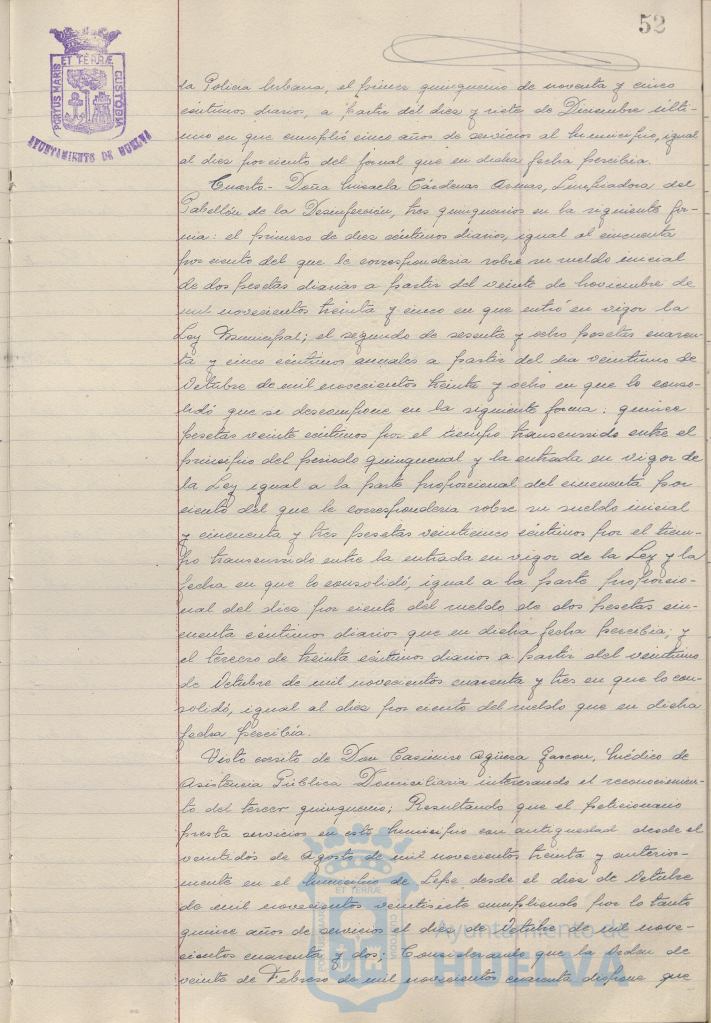 52
PORTUS MARIS ET TERRÆ CUSTODIA
AYUNTAMIENTO DE HUELVA
la Policia Urbana, el primer quinquenio de noventa y cinco
céntimos diarios, a partir del dies y siete de Diciembre últi-
mo en que cumplió cinco años de servicios al Municipio, igual
al dies por ciento del jornal que en dicha fecha percibia.
Cuarto.- Doña Micaela Cárdenas Armas, Limpiadora del
Pabellón de la Desinfección, tres quinquenios en la siguiente for-
ma: el primero de dies céntimos diarios, igual al cincuenta
por ciento del que le correspondería sobre su sueldo inicial
de dos pesetas diarias a partir del veinte de Noviembre de
mil novecientos treinta y cinco en que entró en vigor la
Ley Municipal; el segundo de sesenta y ocho pesetas cuaren-
ta y cinco céntimos anuales a partir del dia veintiuno de
Octubre de mil novecientos treinta y ocho en que lo conso-
lidó que se descompone en la siguiente forma: quince
pesetas veinte céntimos por el tiempo transcurrido entre el
principio del periodo quinquenal y la entrada en vigor de
la Ley igual a la parte proporcional del cincuenta por
ciento del que le correspondería sobre su sueldo inicial
y cincuenta y tres pesetas veinticinco céntimos por el tiem-
po transcurrido entre la entrada en vigor de la Ley y la
fecha en que lo consolidó, igual a la parte proporcio-
nal del dies por ciento del sueldo de dos pesetas cin-
cuenta céntimos diarios que en dicha fecha percibia; y
el tercero de treinta céntimos diarios a partir del veintiuno
de Octubre de mil novecientos cuarenta y tres en que lo con-
solidó, igual al dies por ciento del sueldo que en dicha
fecha percibía.
Visto escrito de Don Casimiro Agüera Gascon, Médico de
Asistencia Pública Domiciliaria interesando el reconocimien-
to del tercer quinquenio; Resultando que el peticionario
presta servicios en este Municipio con antiguedad desde el
veintidós de Agosto de mil novecientos treinta y anterior-
mente en el Municipio de Lepe desde el dies de Octubre
de mil novecientos veintisiete cumpliendo por lo tanto
quince años de servicios el dies de Octubre de mil nove-
cientos cuarenta y dos; Considerando que la Orden de
veinte de Febrero de mil novecientos cuarenta dispone que
PORTUS MARIS ET TERRÆ CUSTODIA
Ayuntamiento de
HUELVA